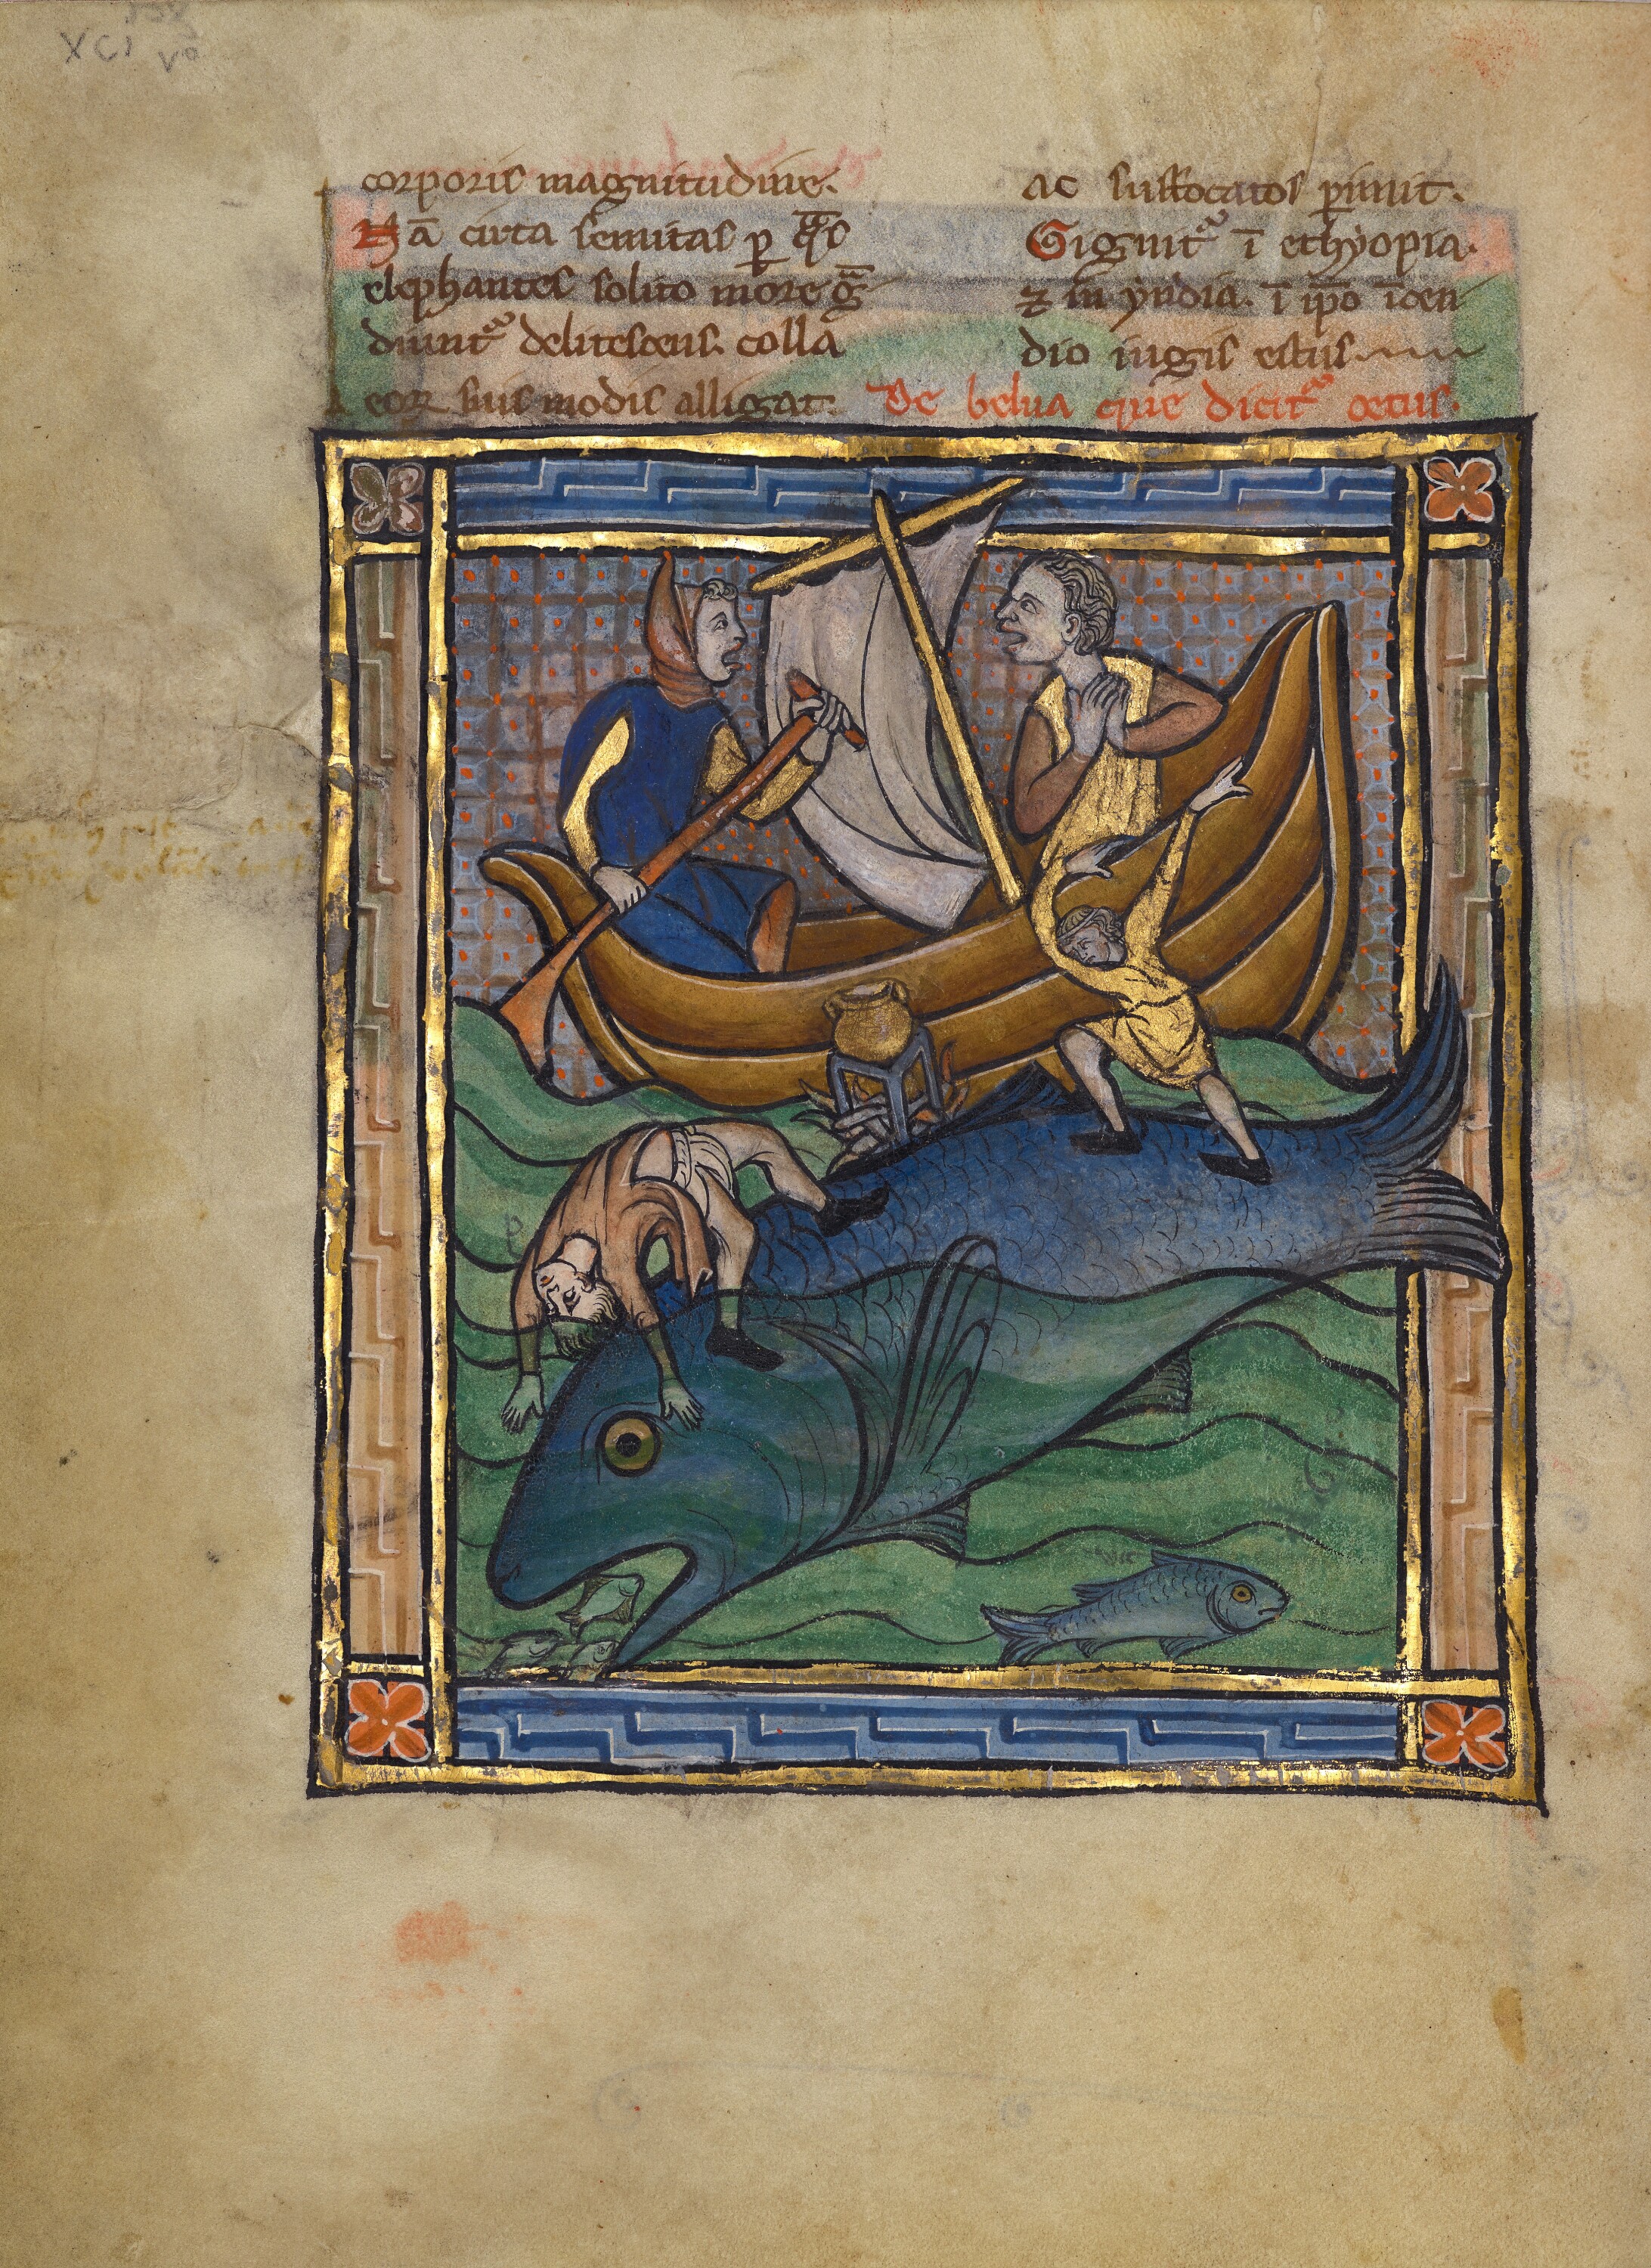 XCI vº
corporis magnitudine.
Nā circa semitas p̱ q̄s
elephantes solito more g̃
diunt᷑ delitescens. colla
eoꝝ suis modis alligat.
ac suffocatos p̱imit.
Gignit᷑ ī ethyopia.
⁊ in yndia. ī ip̄o īcen
dio iugis estus
De belua que dicit᷑ cetus.